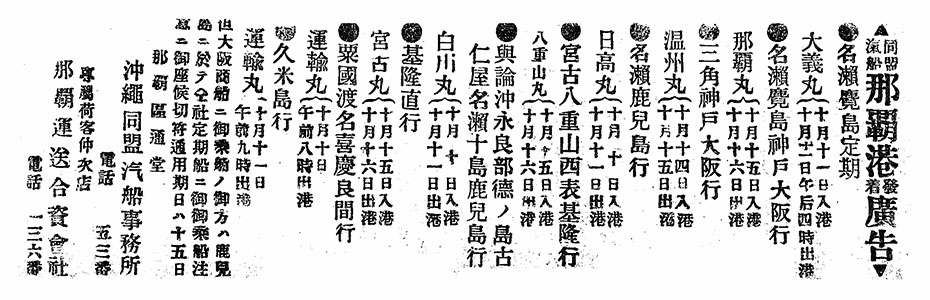 ▲同盟汽船那覇港發着廣告▼
●名瀨鹿島定期
大義丸 十月十一日入港
十月十二日午后四時出港
●名瀨鹿島神戸大阪行
那覇丸 十月十五日入港
十月十六日出港
●三角神戸大阪行
温州丸 十月十四日入港
十月十五日出港
●名瀨鹿兒島行
日高丸 十月十日入港
十月十一日出港
●宮古八重山西表基隆行
八重山丸 十月十五日入港
十月十六日出港
●與論沖永良部德ノ島古
仁屋名瀨十島鹿兒島行
白川丸 十月十日入港
十月十一日出港
●基隆直行
宮古丸 十月十五日入港
十月十六日出港
●粟國渡名喜慶良間行
運輸丸 十月十日
午前八時出港
●久米島行
運輸丸 十月十一日
午前九時出港
但大阪商船ニ御乘船ノ御方ハ鹿兒
島ニ於テ仝社定期船ニ御乘船
ニ御座候切符通用期日ハ十五日
那覇區通堂
沖繩同盟汽船事務所
電話 五三番
專屬荷客仲次店
那覇運送合資會社
電話 一二六番